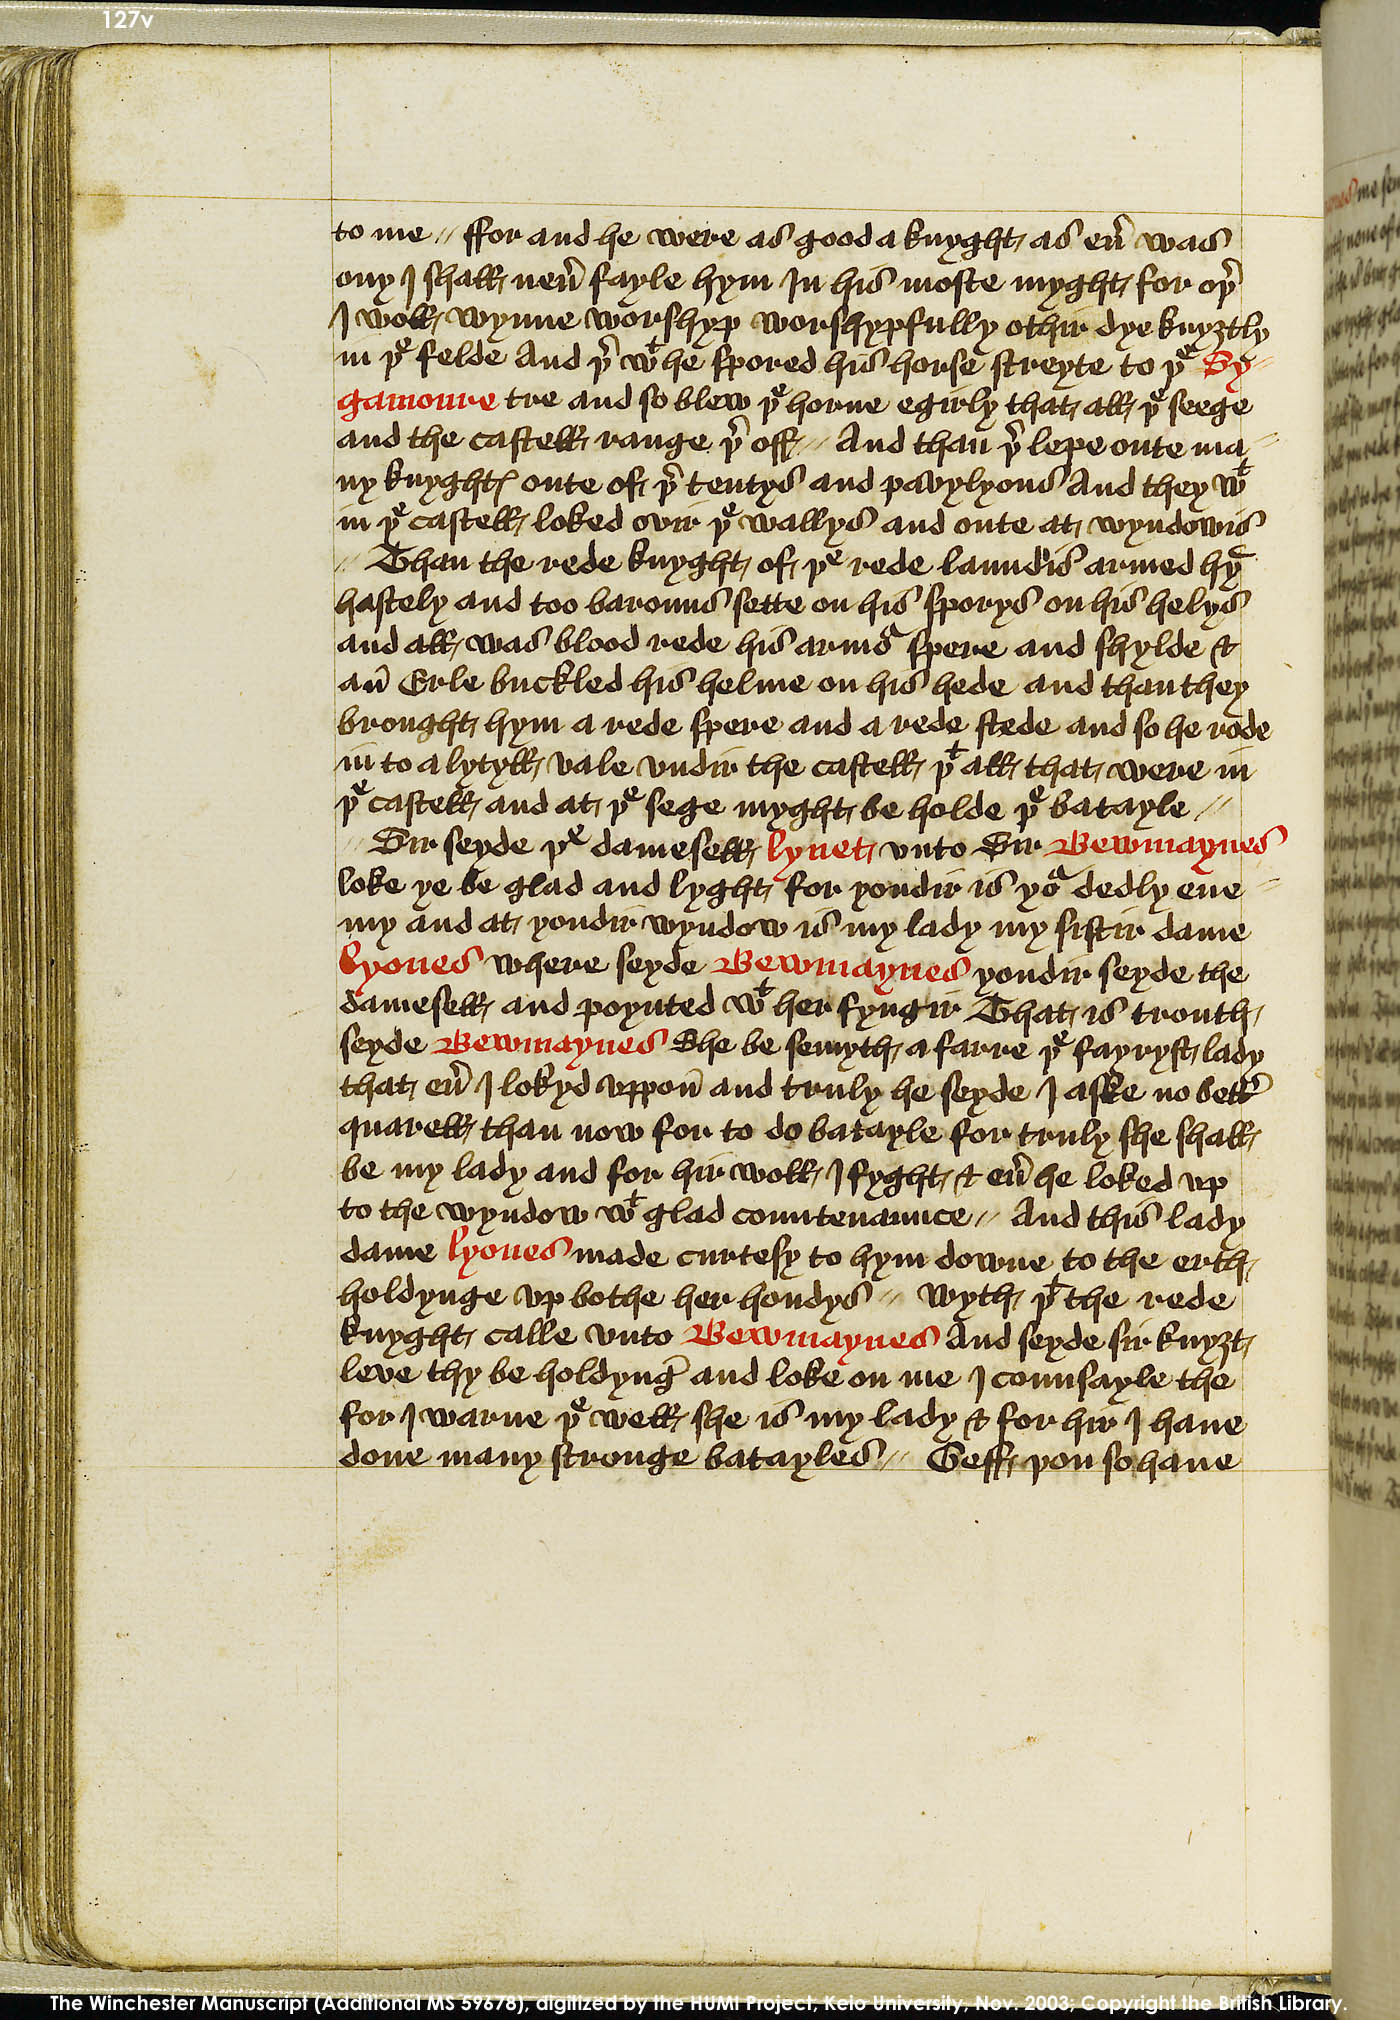 127v
to me // ffor and he were as good a knyght as eũ was
ony I shall neũ fayle hym In his moste myght for oþ̃
I woll wynne worshyp worshypfully othir dye knyȝtly
in þͤ felde And þ̃ wᵗ he spored his horse streyte to þͤ Sy-
gamoure tre and so blew þͤ horne egirly that all þͤ seege
and the castell range þ̃ off // And than þ̃ lepe oute ma-
ny knyghtꝭ oute of þ̃ tentys and pavylyons And they wᵗ
in þͤ castell loked ovir þͤ wallys and oute at wyndowis
// Than the rede knyght of þͤ rede laundis armed hyᵃ
hastely and too barouns sette on his sporys on his helys
and all was blood rede his armᵒs spere and shylde &
añ Erle buckled his helme on his hede and than they
brought hym a rede spere and a rede stede and so he rode
in to a lytyll vale undir the castell þᵗ all that were in
þͤ castell and at þͤ sege myght be holde þͤ batayle //
// Sir seyde þͤ damesell lynet unto Sir Bewmaynes
loke ye be glad and lyght for yondir is yoᵃ dedly ene-
my and at yondir wyndow is my lady my sistir dame
lyones where seyde Bewmaynes yondir seyde the
damesell and poynted wᵗ her fyngir That is trouth
seyde Bewmaynes She be semyth a farre þͤ fayryst lady
that eũ I lokyd uppoñ and truly he seyde I aske no bett̃
quarell than now for to do batayle for truly she shall
be my lady and for hir woll I fyght & eũ he loked up
to the wyndow wᵗ glad countenaunce // And this lady
dame lyones made curtesy to hym downe to the erth
holdynge up bothe her hondys // Wyth þᵗ the rede
knyght calle unto Bewmaynes And seyde sir knyȝt
leve thy be holdyng̃ and loke on me I counsayle the
for I warne þͤ well she is my lady & for hir I have
done many stronge batayles // Geff þou so have
The Winchester Manuscript (Additional MS 59678), digitized by the HUMI Project, Keio University, Nov. 2003; Copyright the British Library.